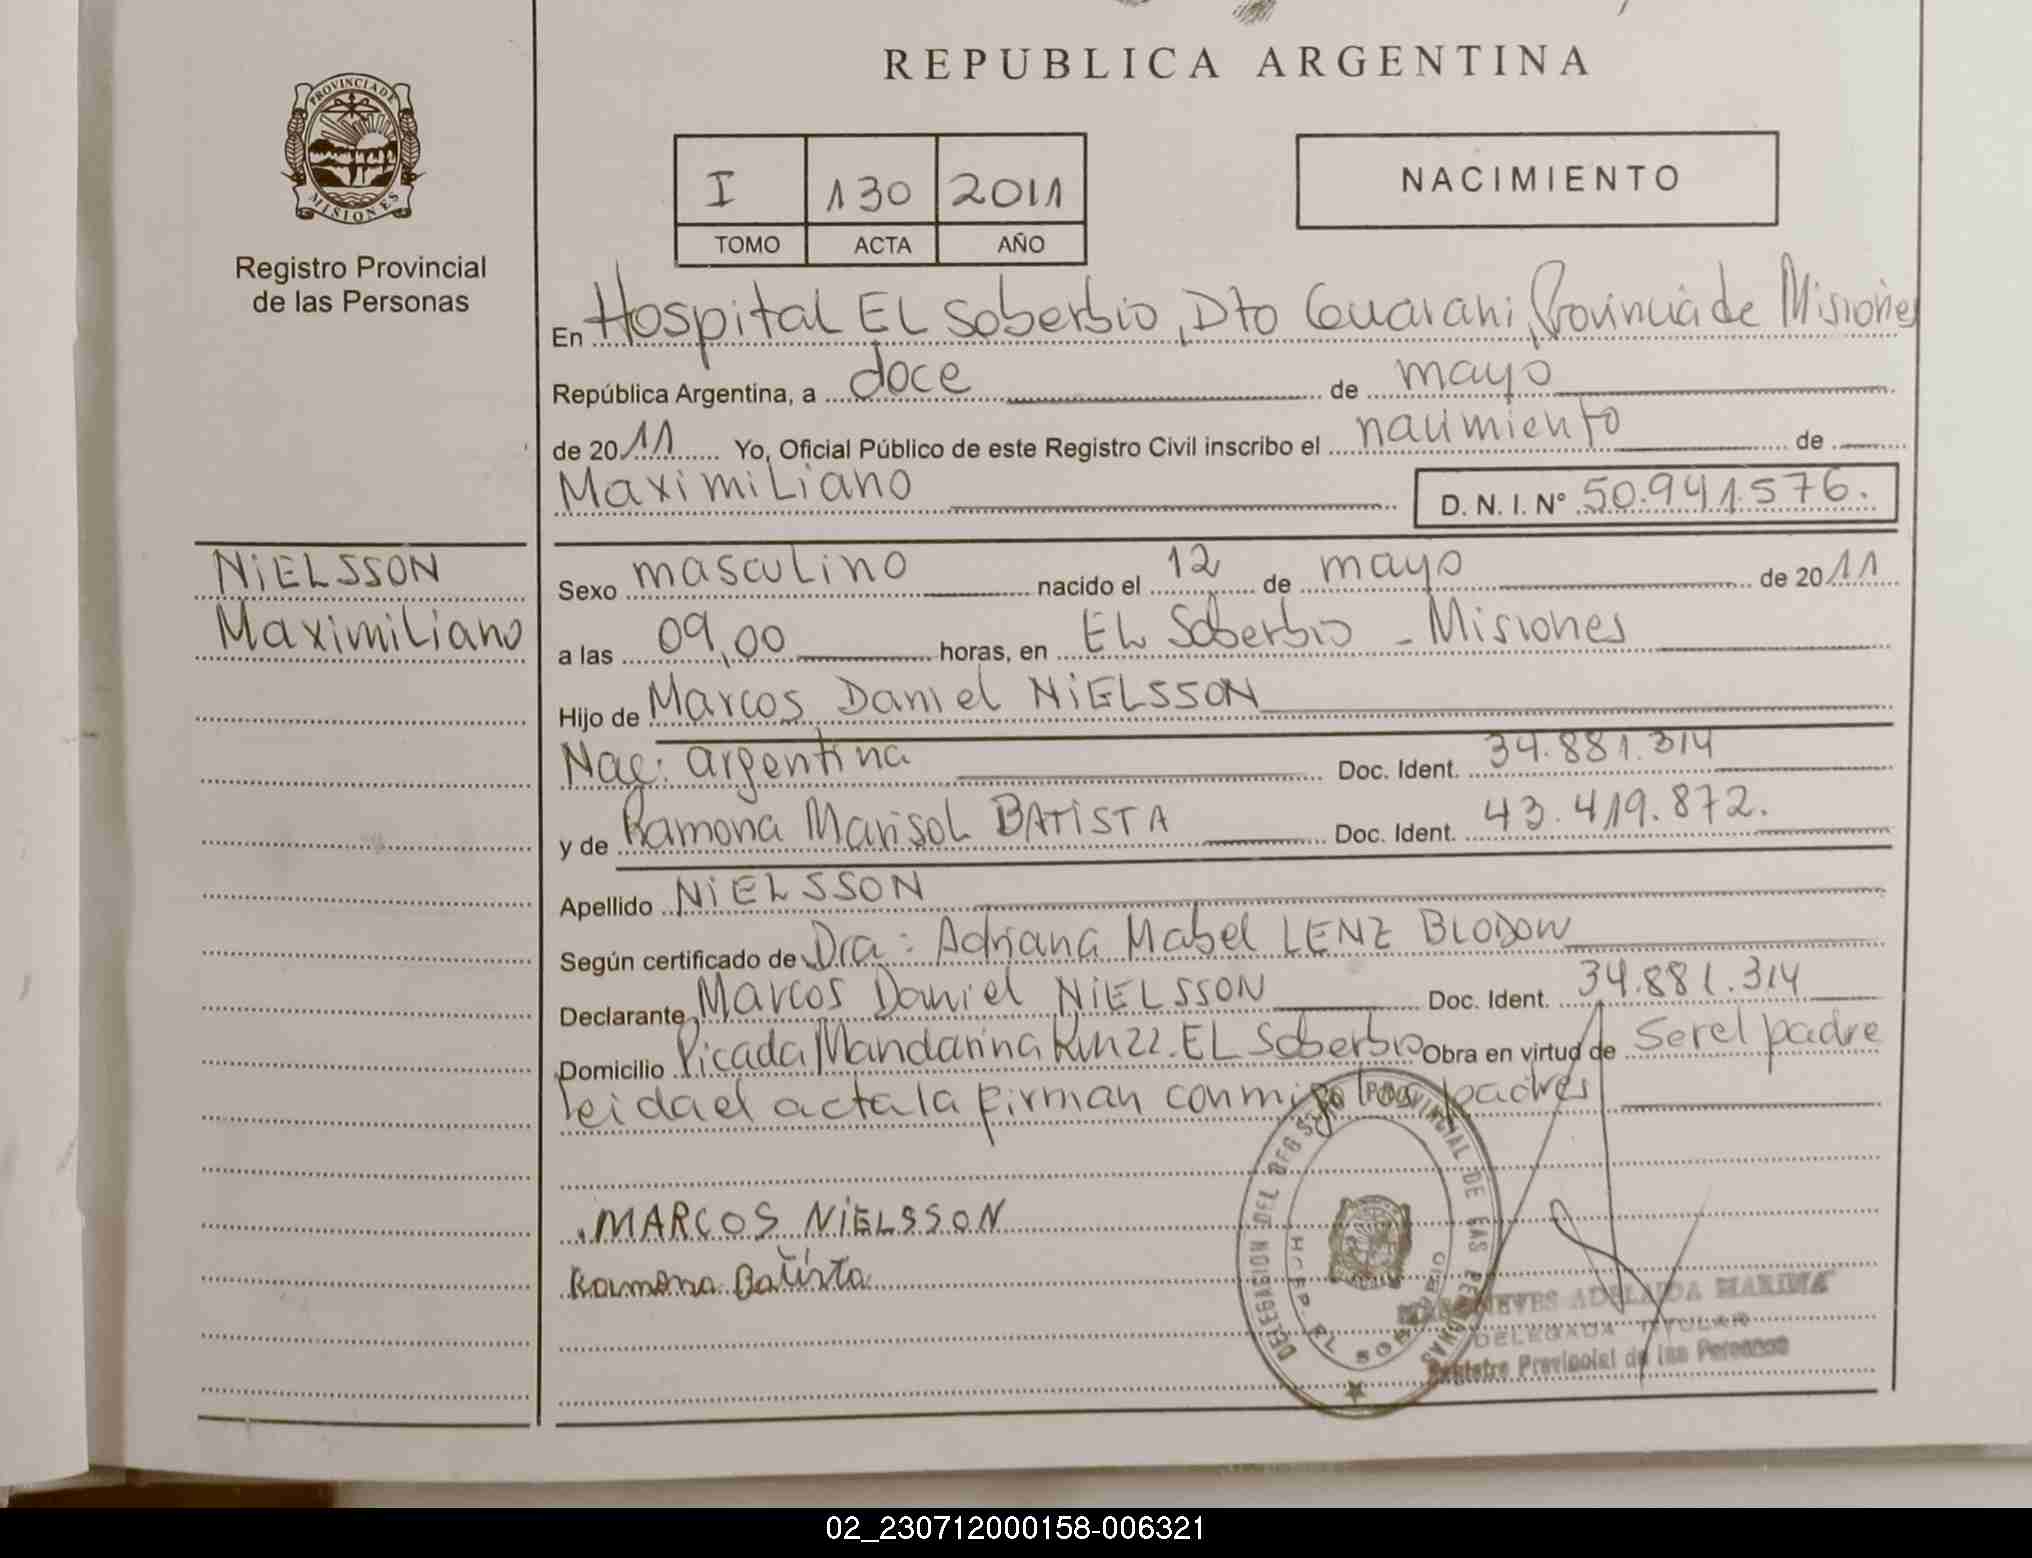 REPUBLICA ARGENTINA
PROVINCIA DE
MISIONES
Registro Provincial
de las Personas
I 130 2011
TOMO ACTA AÑO
NACIMIENTO
En Hospital EL Soberbio, Dto Guarani, Provincia de Misiones
República Argentina, a doce de mayo
de 2011 Yo, Oficial Público de este Registro Civil inscribo el nacimiento de
Maximiliano D. N. I. Nº 50.941.576.
NiELSSON
Maximiliano
Sexo masculino nacido el 12 de mayo de 2011
a las 09,00 horas, en EL Soberbio - Misiones
Hijo de Marcos Daniel NiELSSON
Nac: argentina Doc. Ident. 34.881.314
y de Ramona Marisol BATiSTA Doc. Ident. 43.419.872.
Apellido NiELSSON
Según certificado de Dra: Adriana Mabel LENZ BLODOW
Declarante Marcos Daniel NiELSSON Doc. Ident. 34.881.314
Domicilio Picada Mandarina Km 22. EL Soberbio Obra en virtud de Ser el padre
leida el acta la firman conmigo los padres
MARCOS NiELSSON
Ramona Batista
DELEGACION DEL REGISTRO PROVINCIAL DE LAS PERSONAS
EL SOBERBIO
NIEVES ADELAIDA MARIMA
DELEGADA TITULAR
Registro Provincial de las Personas
02_230712000158-006321